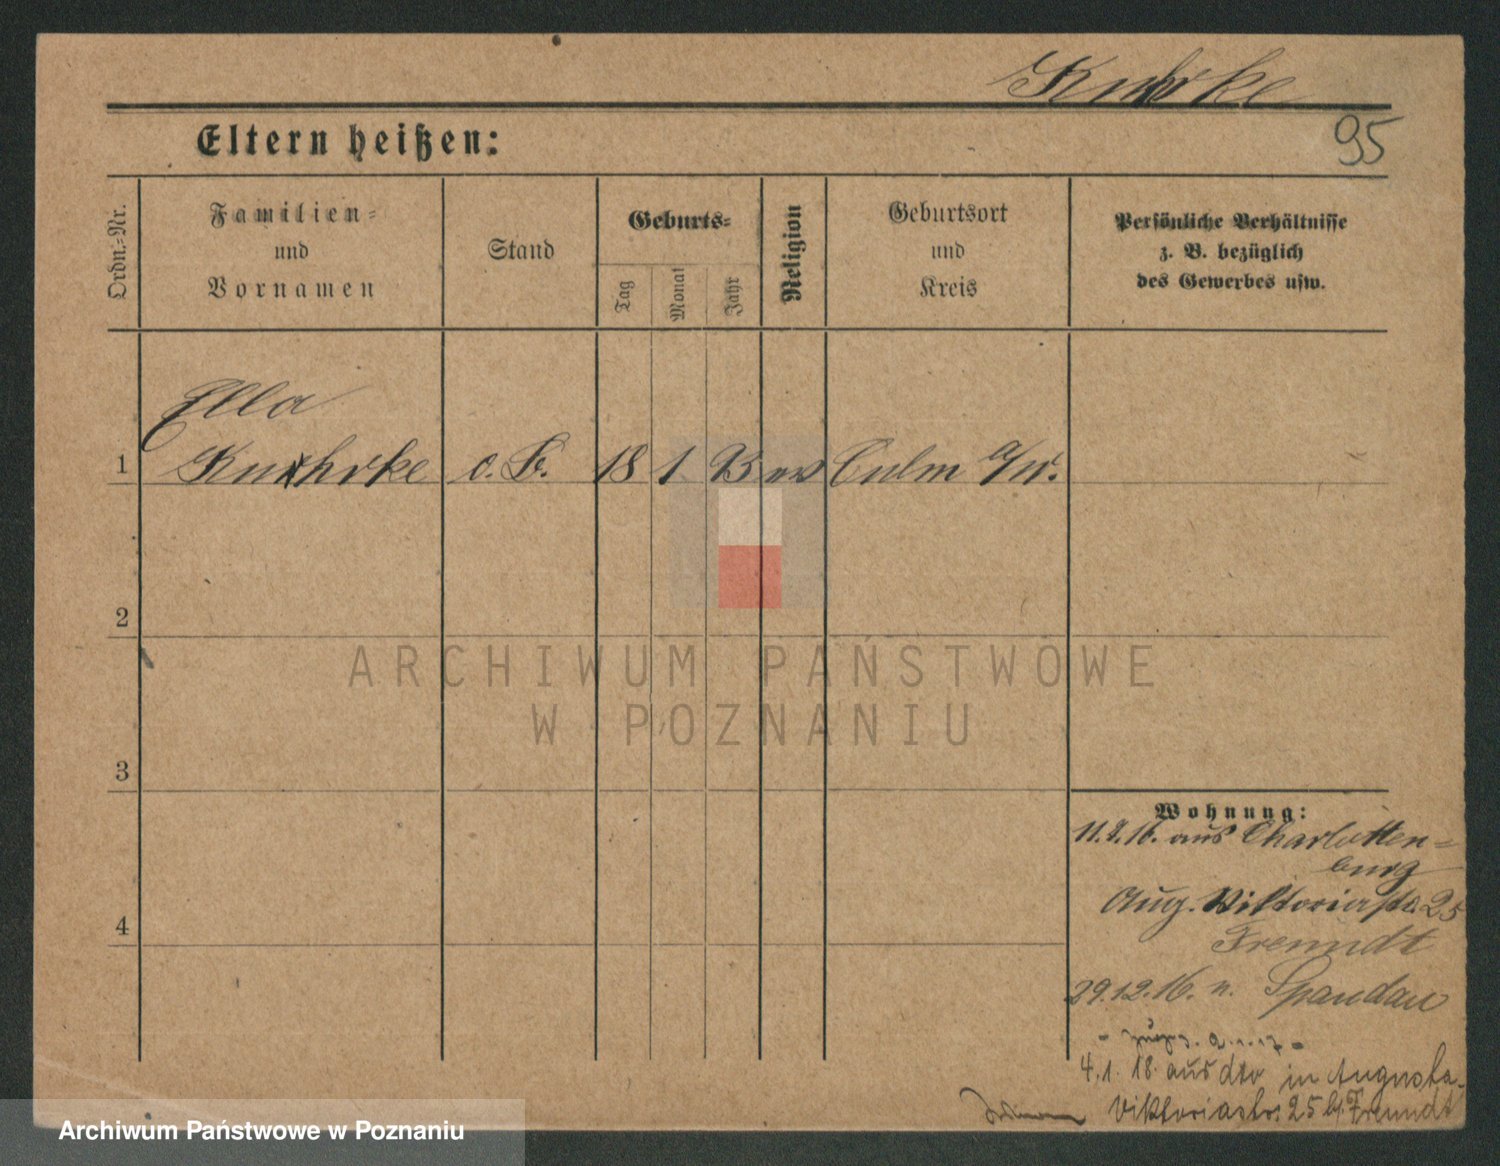 Kuhrke
95
Eltern heißen:
Ordn.-Nr.
Familien-
und
Vornamen
Stand
Geburts-
Tag
Monat
Jahr
Religion
Geburtsort
und
Kreis
Persönliche Verhältnisse
z. B. bezüglich
des Gewerbes usw.
Ella
1 Kuhrke 18 1 93 ev Culm a/W.
2
ARCHIWUM PAŃSTWOWE
W POZNANIU
3
Wohnung:
11.9.16. aus Charlotten-
burg
Aug. Viktoriastr. 25
Freundt
4
29.12.16. n. Spandau
4.1.18. aus dto in Augusta-
Viktoriastr 25 b/ Freundt
Archiwum Państwowe w Poznaniu